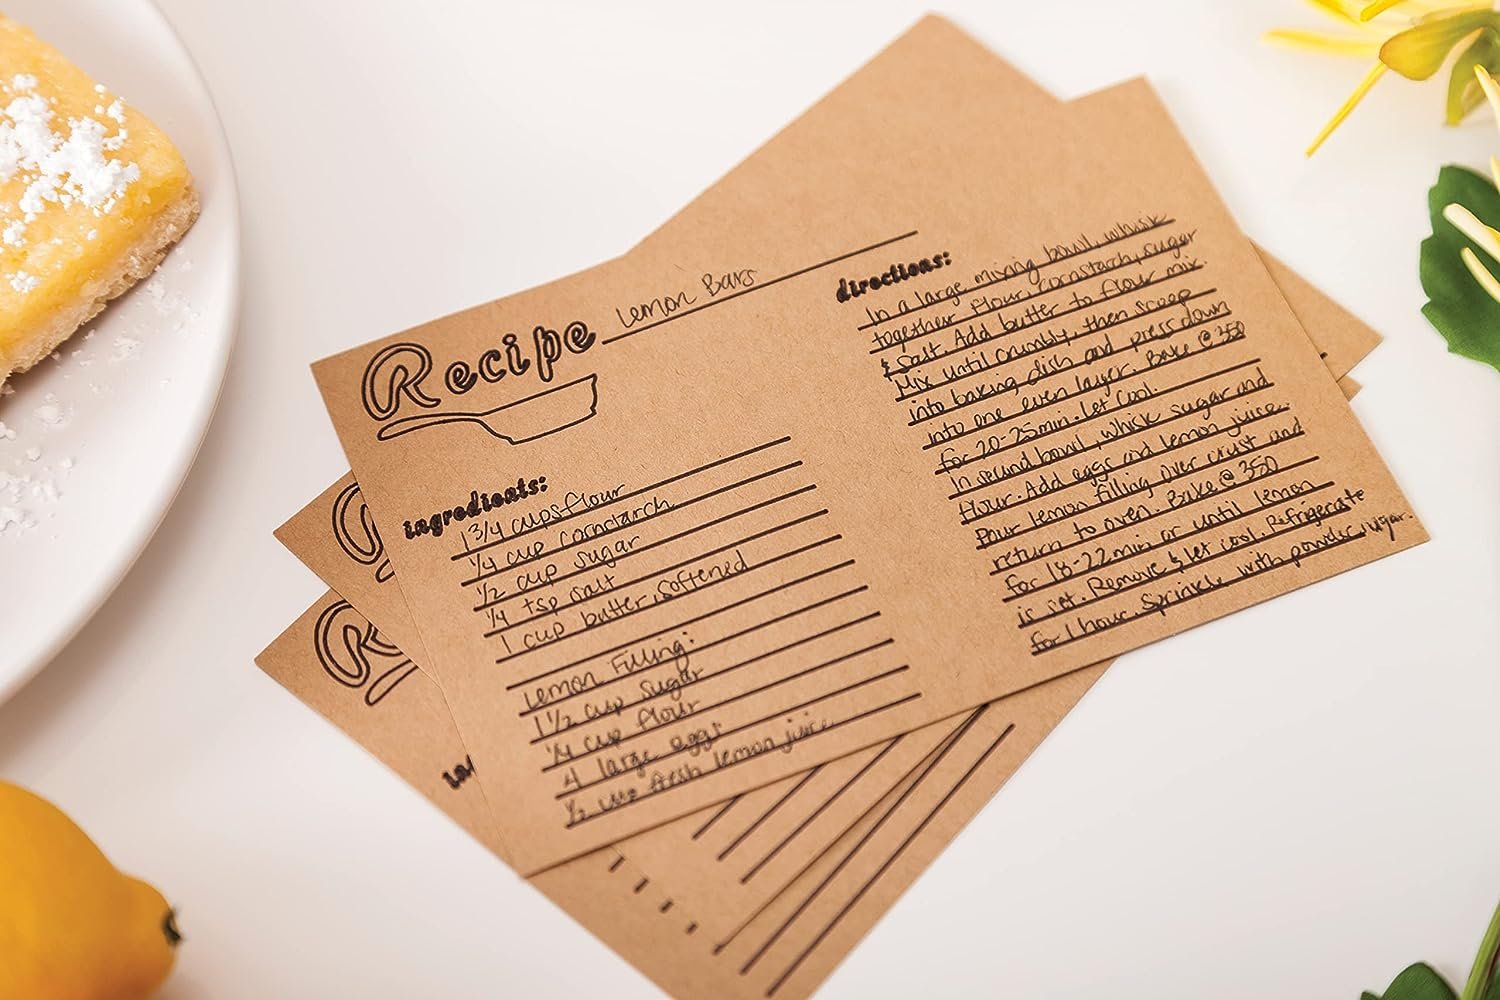 Recipe Lemon Bars
ingredients:
1 3/4 cups flour
1/4 cup cornstarch
1/2 cup sugar
1/4 tsp salt
1 cup butter, softened
Lemon Filling:
1 1/2 cup sugar
1/4 cup flour
4 large eggs
1/2 cup fresh lemon juice
directions:
In a large mixing bowl, whisk
together flour, cornstarch, sugar
& salt. Add butter to flour mix.
Mix until crumbly, then scoop
into baking dish and press down
into one even layer. Bake @ 350
for 20-25min. Let cool.
In second bowl, whisk sugar and
flour. Add eggs and lemon juice.
Pour lemon filling over crust and
return to oven. Bake @ 350
for 18-22min or until lemon
is set. Remove & let cool. Refrigerate
for 1 hour. Sprinkle with powder sugar.
R
Rec
in